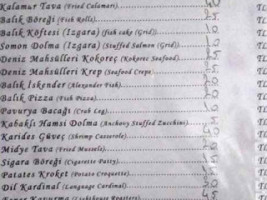 Kalamar Tava (Fried Calamari) 40 TL
Balık Böreği (Fish Rolls) 25 TL
Balık Köftesi (Izgara) (fish cake (Grid)) 10 TL
Somon Dolma (Izgara) (Stuffed Salmon (Grid)) 10 TL
Deniz Mahsülleri Kokoreç (Kokorec Seafood 25 TL
Deniz Mahsülleri Krep (Seafood Crepe 25 TL
Balık İskender (Alexander Fish) 20 TL
Balık Pizza (Fish Pizza) 20 TL
Pavurya Bacağı (Crab Leg) 10 TL
Kabaklı Hamsi Dolma (Anchovy Stuffed Zucchini) 5 TL
Karides Güveç (Shrimp Casserole) 40 TL
Midye Tava (Fried Mussels) 20 TL
Sigara Böreği (Cigarette Patty) 25 TL
Patates Kroket (Potato Croquette) 25 TL
Dil Kardinal (Language Cardinal) 20 TL
Fener Kavurma (Lighthouse Roasters)